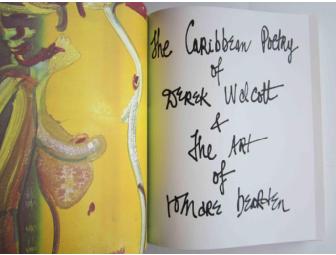 The Caribbean Poetry
of
Derek Walcott
&
The Art
of
Romare Bearden